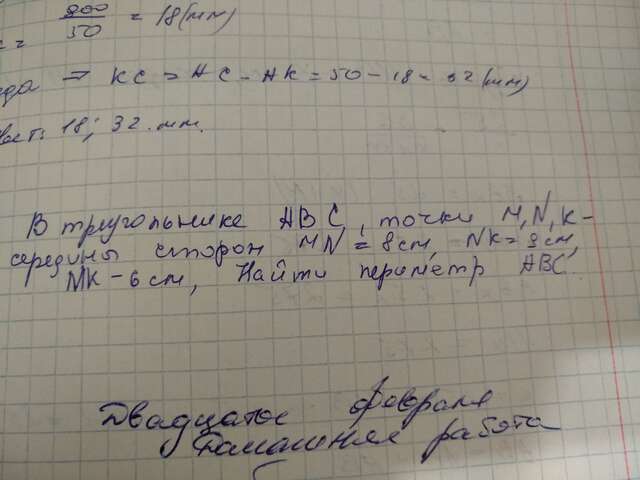 900/50 = 18 (мм)
⇒ KC = AC - AK = 50 - 18 = 32 (мм)
18; 32 мм.
В треугольнике ABC, точки M, N, K -
середины сторон MN = 8 см, NK = 9 см,
MK - 6 см, Найти периметр ABC.
Двадцатое февраля
Домашняя работа